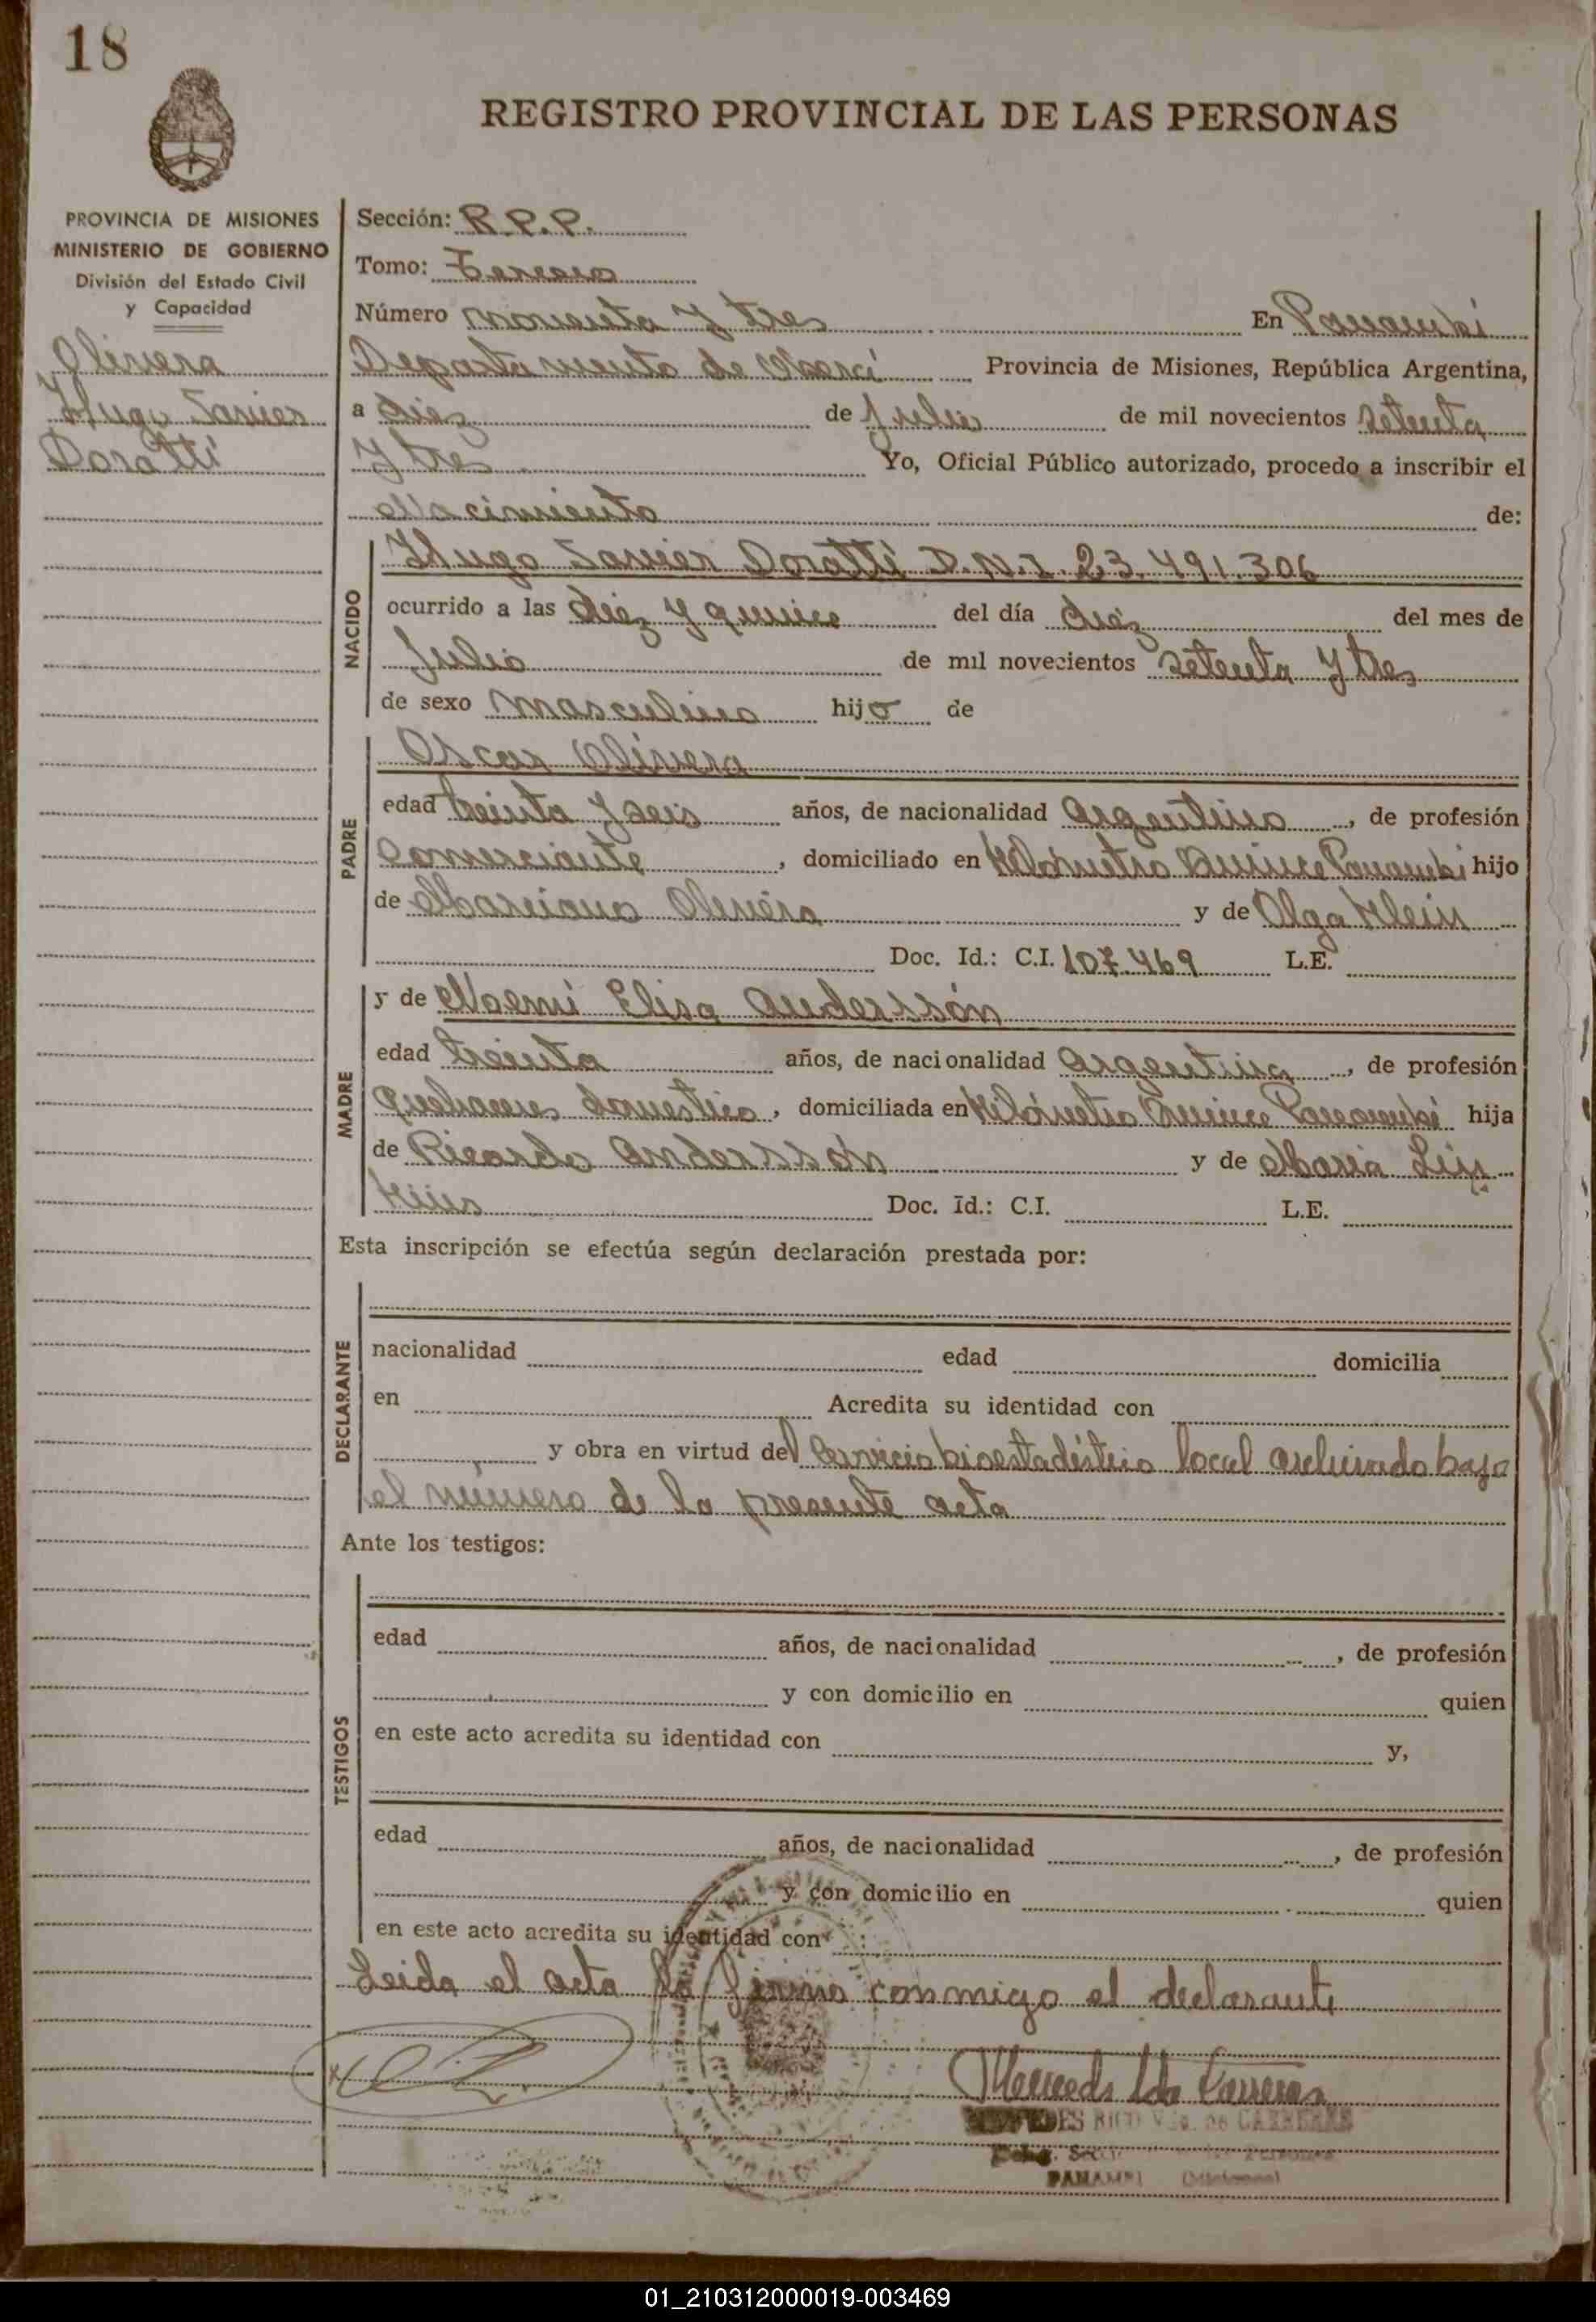 18
REGISTRO PROVINCIAL DE LAS PERSONAS
PROVINCIA DE MISIONES
MINISTERIO DE GOBIERNO
División del Estado Civil
y Capacidad
Olivera
Hugo Javier
Doratti
Sección: R.P.P.
Tomo: Tercero
Número noventa y tres En Panambí
Departamento de Oberá Provincia de Misiones, República Argentina,
a diez de Julio de mil novecientos setenta
y tres Yo, Oficial Público autorizado, procedo a inscribir el
Nacimiento de:
NACIDO
Hugo Javier Doratti D.N.I. 23.491.306
ocurrido a las diez y quince del día diez del mes de
Julio de mil novecientos setenta y tres
de sexo masculino hijo de
PADRE
Oscar Olivera
edad treinta y seis años, de nacionalidad Argentino, de profesión
Comerciante, domiciliado en Kilómetro Quince Panambí hijo
de Marciano Olivera y de Olga Klein
Doc. Id.: C.I. 107.469 L.E.
MADRE
y de Noemí Elisa Anderssón
edad treinta años, de nacionalidad Argentina, de profesión
quehaceres domestico, domiciliada en Kilómetro Quince Panambí hija
de Ricardo Anderssón y de Maria
Doc. Id.: C.I. L.E.
Esta inscripción se efectúa según declaración prestada por:
DECLARANTE
nacionalidad edad domicilia
en Acredita su identidad con
y obra en virtud del Servicio bioestadístico local archivado bajo
el número de la presente acta
Ante los testigos:
TESTIGOS
edad años, de nacionalidad , de profesión
y con domicilio en quien
en este acto acredita su identidad con y,
edad años, de nacionalidad , de profesión
y con domicilio en quien
en este acto acredita su identidad con
Leida el acta la firma conmigo el declarante
RICO Vda. de CARRERAS
PANAMBI (Misiones)
01_210312000019-003469